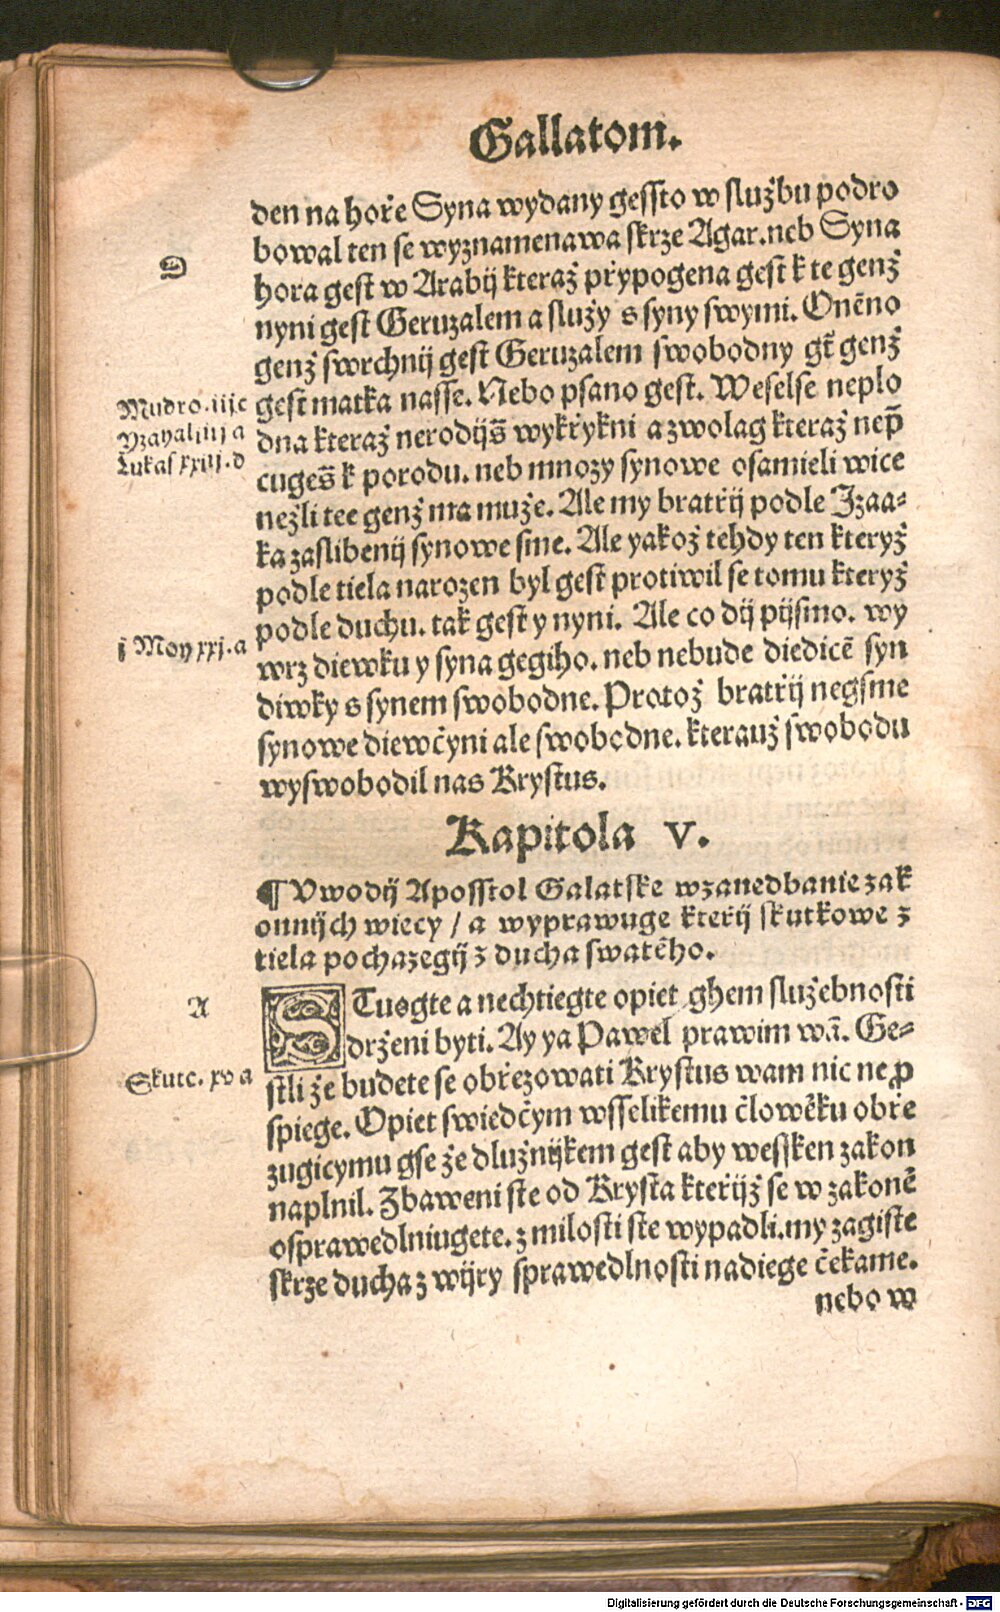 Gallatom.
den na horře Syna wydany gessto w službu podro
bowal ten se wyznamenawa skrze Agar. neb Syna
D
hora gest w Arabij kteraž přypogena gest k te genž
nyni gest Geruzalem a služy s syny swymi. Onēno
genž swrchnij gest Geruzalem swobodny gt̄ genž
Mudro. iij c
gest matka nasse. Nebo psano gest. Weselse neplo
Yzaya liiij a
dna kteraž nerodijs̄ wykřykni a zwolag kteraž nep̄
Lukas xxiij. d
cuges̄ k porodu. neb mnozy synowe osamieli wice
nežli tee genž ma muže. Ale my bratřij podle Jzaa-
ka zaslibenij synowe sme. Ale yakož tehdy ten kteryž
podle tiela narozen byl gest protiwil se tomu kteryž
podle duchu. tak gest y nyni. Ale co dij pijsmo. wy
i Moy xxj. a
wrz diewku y syna gegiho. neb nebude diedicē syn
diwky s synem swobodne. Protož bratřij negsme
synowe diewčyni ale swobodne. kterauž swobodu
wyswobodil nas Krystus.
Kapitola V.
¶ Vwodij Aposstol Galatske wzanedbanie zak
onnijch wiecy / a wyprawuge kteřij skutkowe z
tiela pochazegij z ducha swatēho.
A
STuogte a nechtiegte opiet ghem služebnosti
drženi byti. Ay ya Pawel prawim wā. Ge-
Skutc. xv a
stli že budete se obřezowati Krystus wam nic ne ꝓ
spiege. Opiet swiedčym wsselikemu člowěku obře
zugicymu gse že dlužnijkem gest aby wessken zakon
naplnil. Zbaweni ste od Krysta kteřijž se w zakonē
osprawedlniugete. z milosti ste wypadli. my zagiste
skrze ducha z wijry sprawedlnosti nadiege čekame.
nebo w
Digitalisierung gefördert durch die Deutsche Forschungsgemeinschaft - DFG